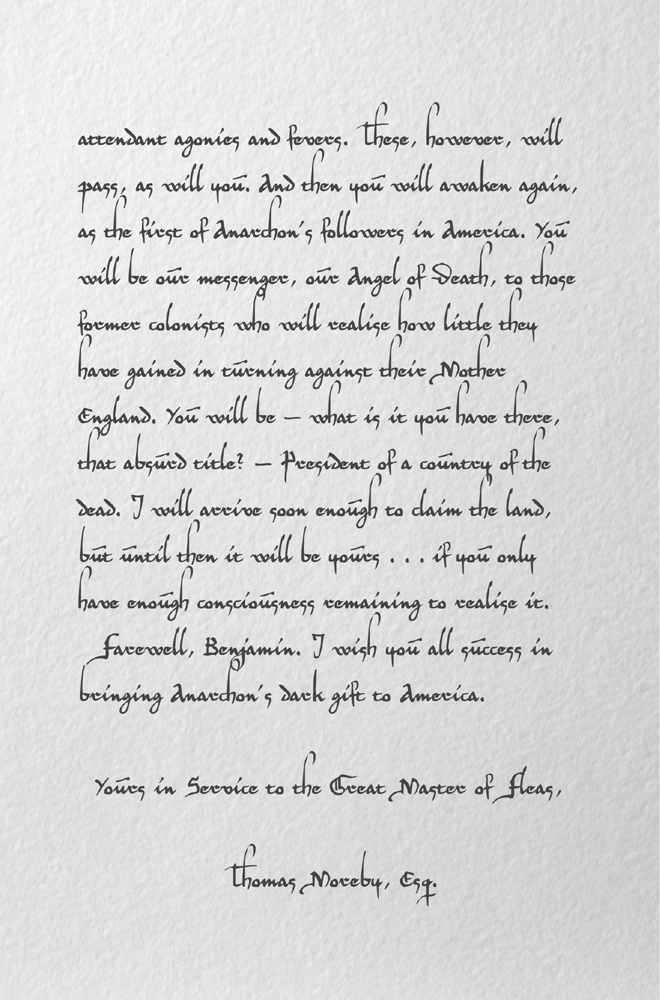 attendant agonies and fevers. These, however, will
pass, as will you. And then you will awaken again,
as the first of Anarchon's followers in America. You
will be our messenger, our Angel of Death, to those
former colonists who will realise how little they
have gained in turning against their Mother
England. You will be – what is it you have there,
that absurd title? – President of a country of the
dead. I will arrive soon enough to claim the land,
but until then it will be yours . . . if you only
have enough consciousness remaining to realise it.
Farewell, Benjamin. I wish you all success in
bringing Anarchon's dark gift to America.
Yours in Service to the Great Master of Fleas,
Thomas Moreby, Esq.